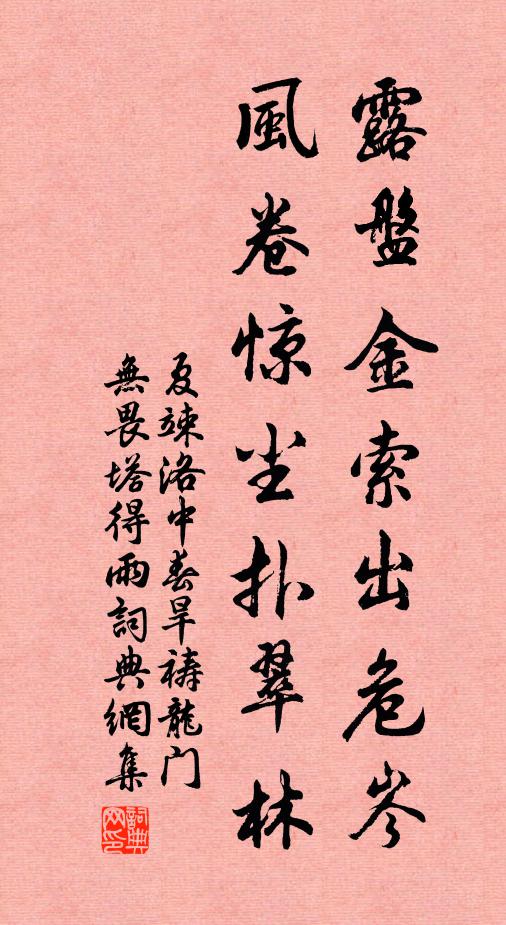 露盤金索出危岑
風卷惊尘扑翠林
夏竦洛中春旱祷龍门
無畏塔得雨詞典網集
詞典
网印